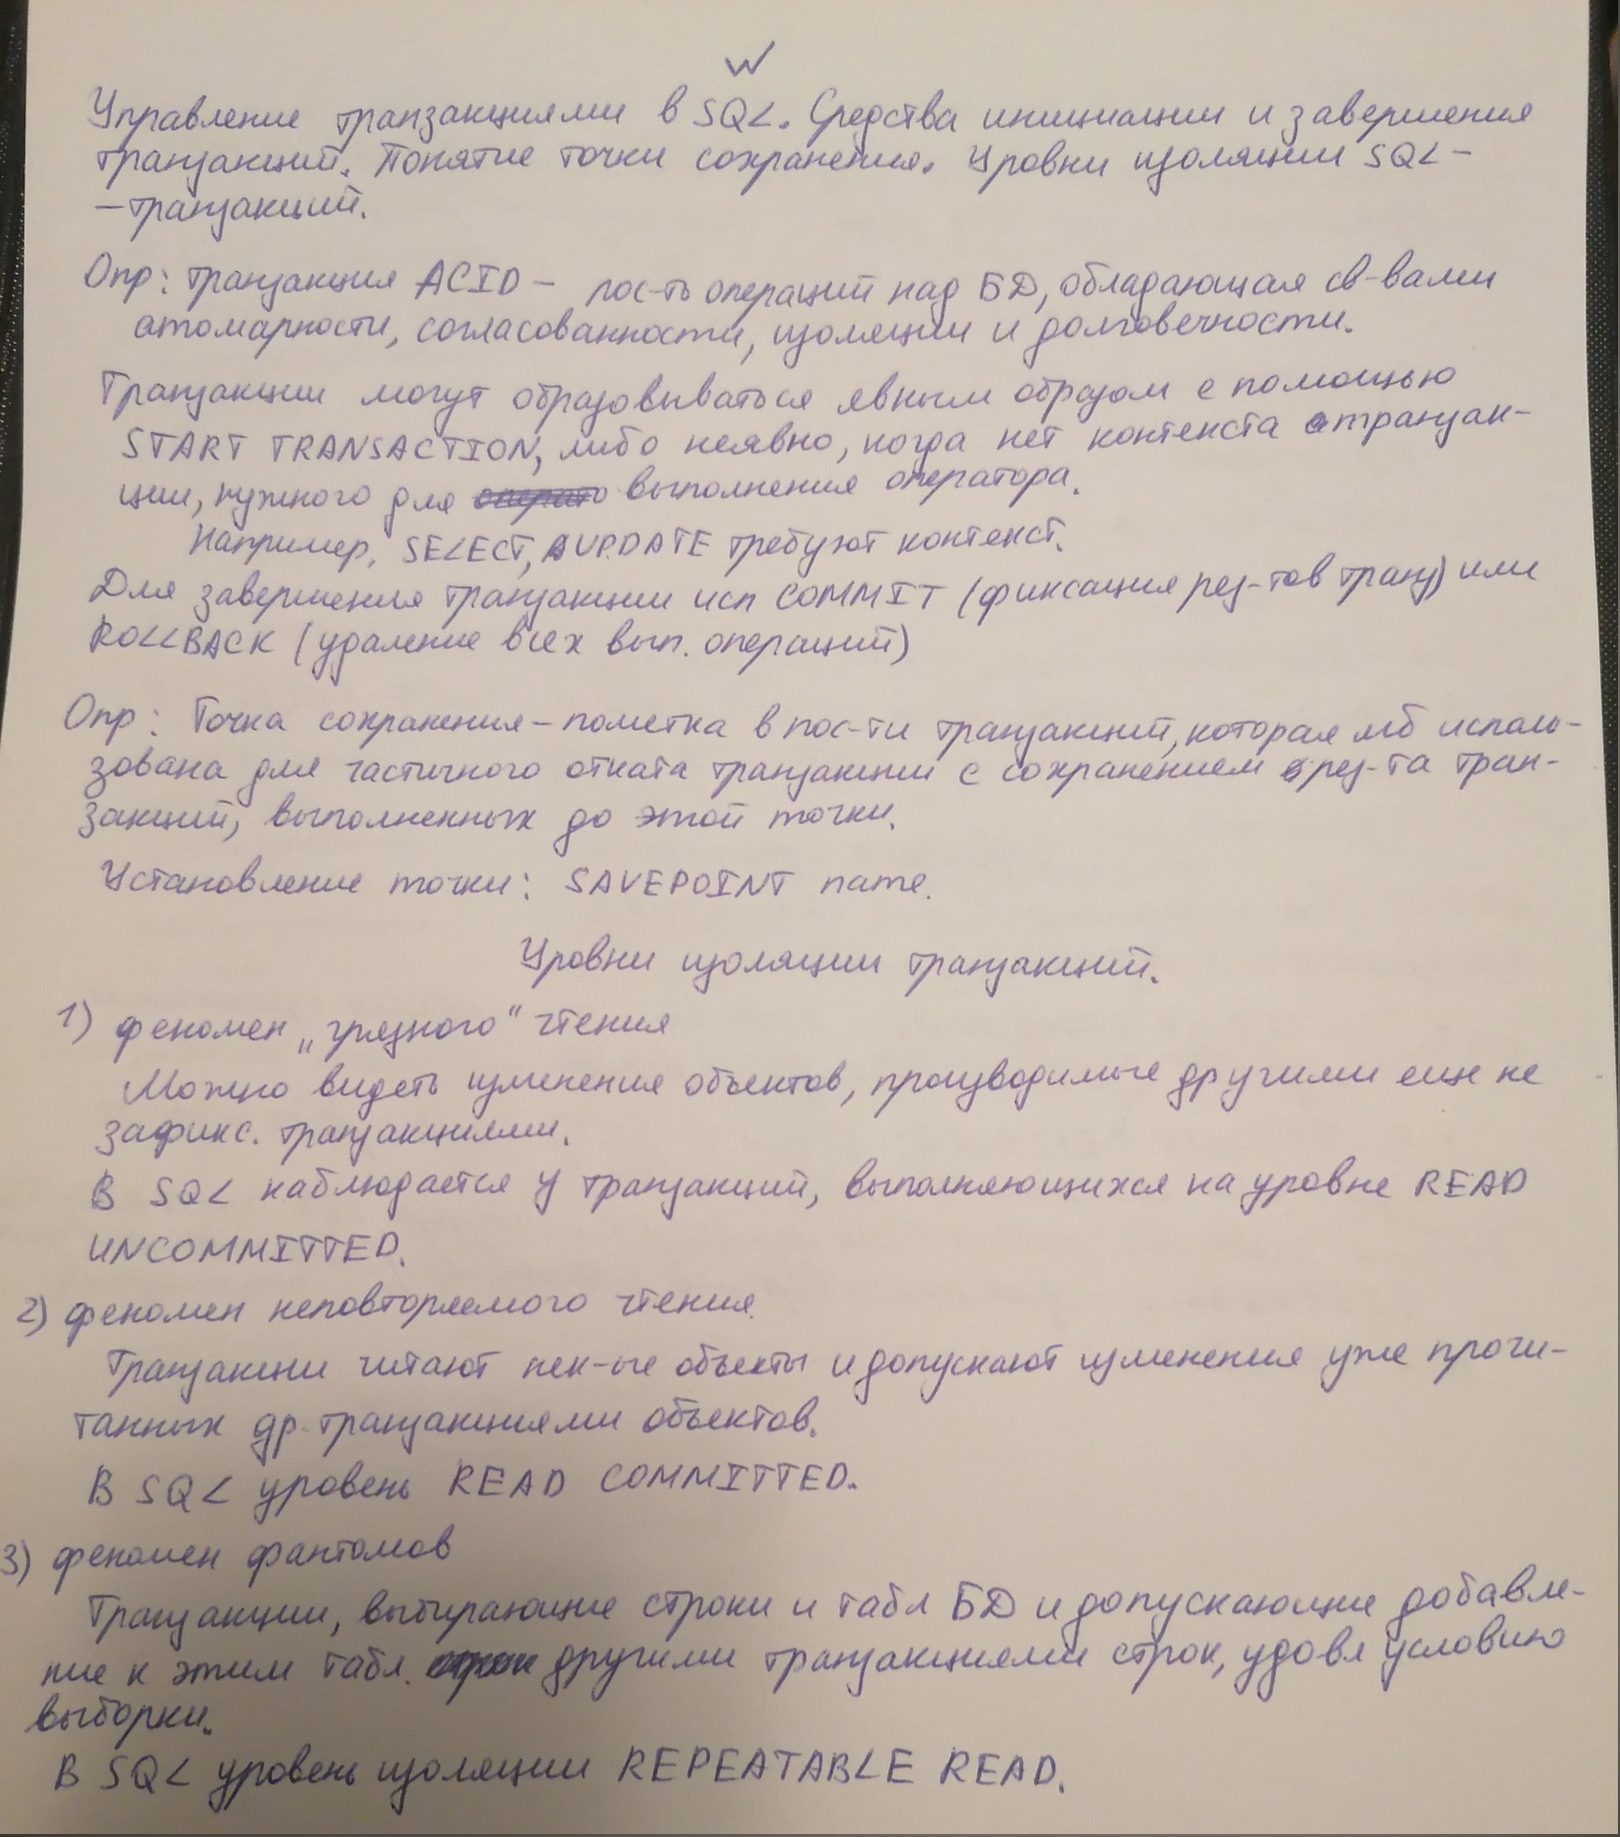 Управление транзакциями в SQL. Средства инициации и завершения
транзакций. Понятие точки сохранения. Уровни изоляции SQL-
-транзакций.
Опр: транзакция ACID - пос-ть операций над БД, обладающая св-вами
атомарности, согласованности, изоляции и долговечности.
Транзакции могут образовываться явным образом с помощью
START TRANSACTION, либо неявно, когда нет контекста транзак-
ции, нужного для выполнения оператора.
Например, SELECT, UPDATE требуют контекст.
Для завершения транзакции исп COMMIT (фиксация рез-тов транз) или
ROLLBACK (удаление всех вып. операций)
Опр: Точка сохранения - пометка в пос-ти транзакций, которая мб исполь-
зована для частичного отката транзакции с сохранением рез-та тран-
закций, выполненных до этой точки.
Установление точки: SAVEPOINT name.
Уровни изоляции транзакций.
1) феномен „грязного“ чтения
Можно видеть изменения объектов, производимые другими еще не
зафикс. транзакциями.
В SQL наблюдается у транзакций, выполняющихся на уровне READ
UNCOMMITTED.
2) феномен неповторяемого чтения.
Транзакции читают нек-ые объекты и допускают изменения уже прочи-
танных др. транзакциями объектов.
В SQL уровень READ COMMITTED.
3) феномен фантомов
Транзакции, выбирающие строки и табл БД и допускающие добавле-
ние к этим табл. другими транзакциями строк, удовл условию
выборки.
В SQL уровень изоляции REPEATABLE READ.